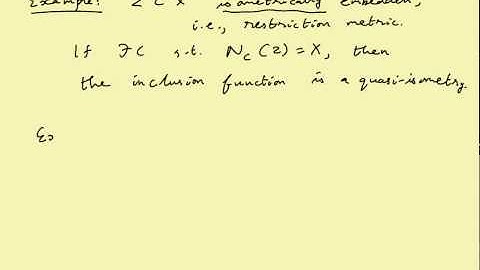 Example: Z ⊂ X isometrically embedded,
i.e., restriction metric.
If ∃C s.t. N_C(Z) = X, then
the inclusion function is a quasi-isometry.
Ex